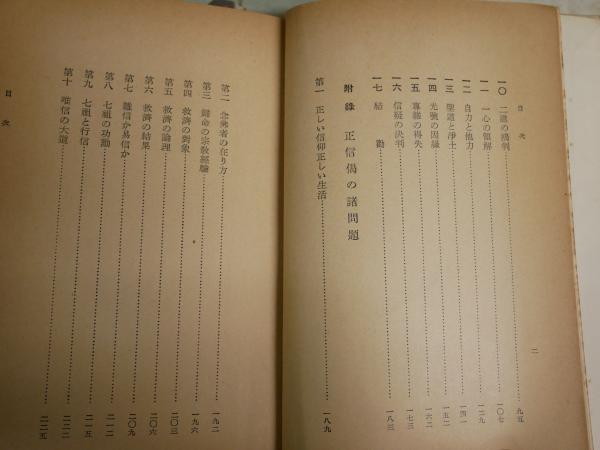 目次
一〇 二道の判………九五
一一 一心の領解………一〇七
一二 自力と他力………一二九
一三 聖道と浄土………一四一
一四 光號の因縁………一五二
一五 專雜の得失………一六二
一六 信疑の決判………一七三
一七 結勸………一八三
附錄 正信偈の諸問題
第一 正しい信仰正しい生活………一八九
二
目次
第二 念佛者の在り方………一九二
第三 歸命の宗教經驗
第四 救濟の對象………一九六
第五 救濟の論理………二〇三
第六 救濟の結果………二〇六
第七 難信か易信か………二〇九
第八 七祖の功勳………二一二
第九 七祖と行信………二一五
第十 唯信の大道………二二二
二二五